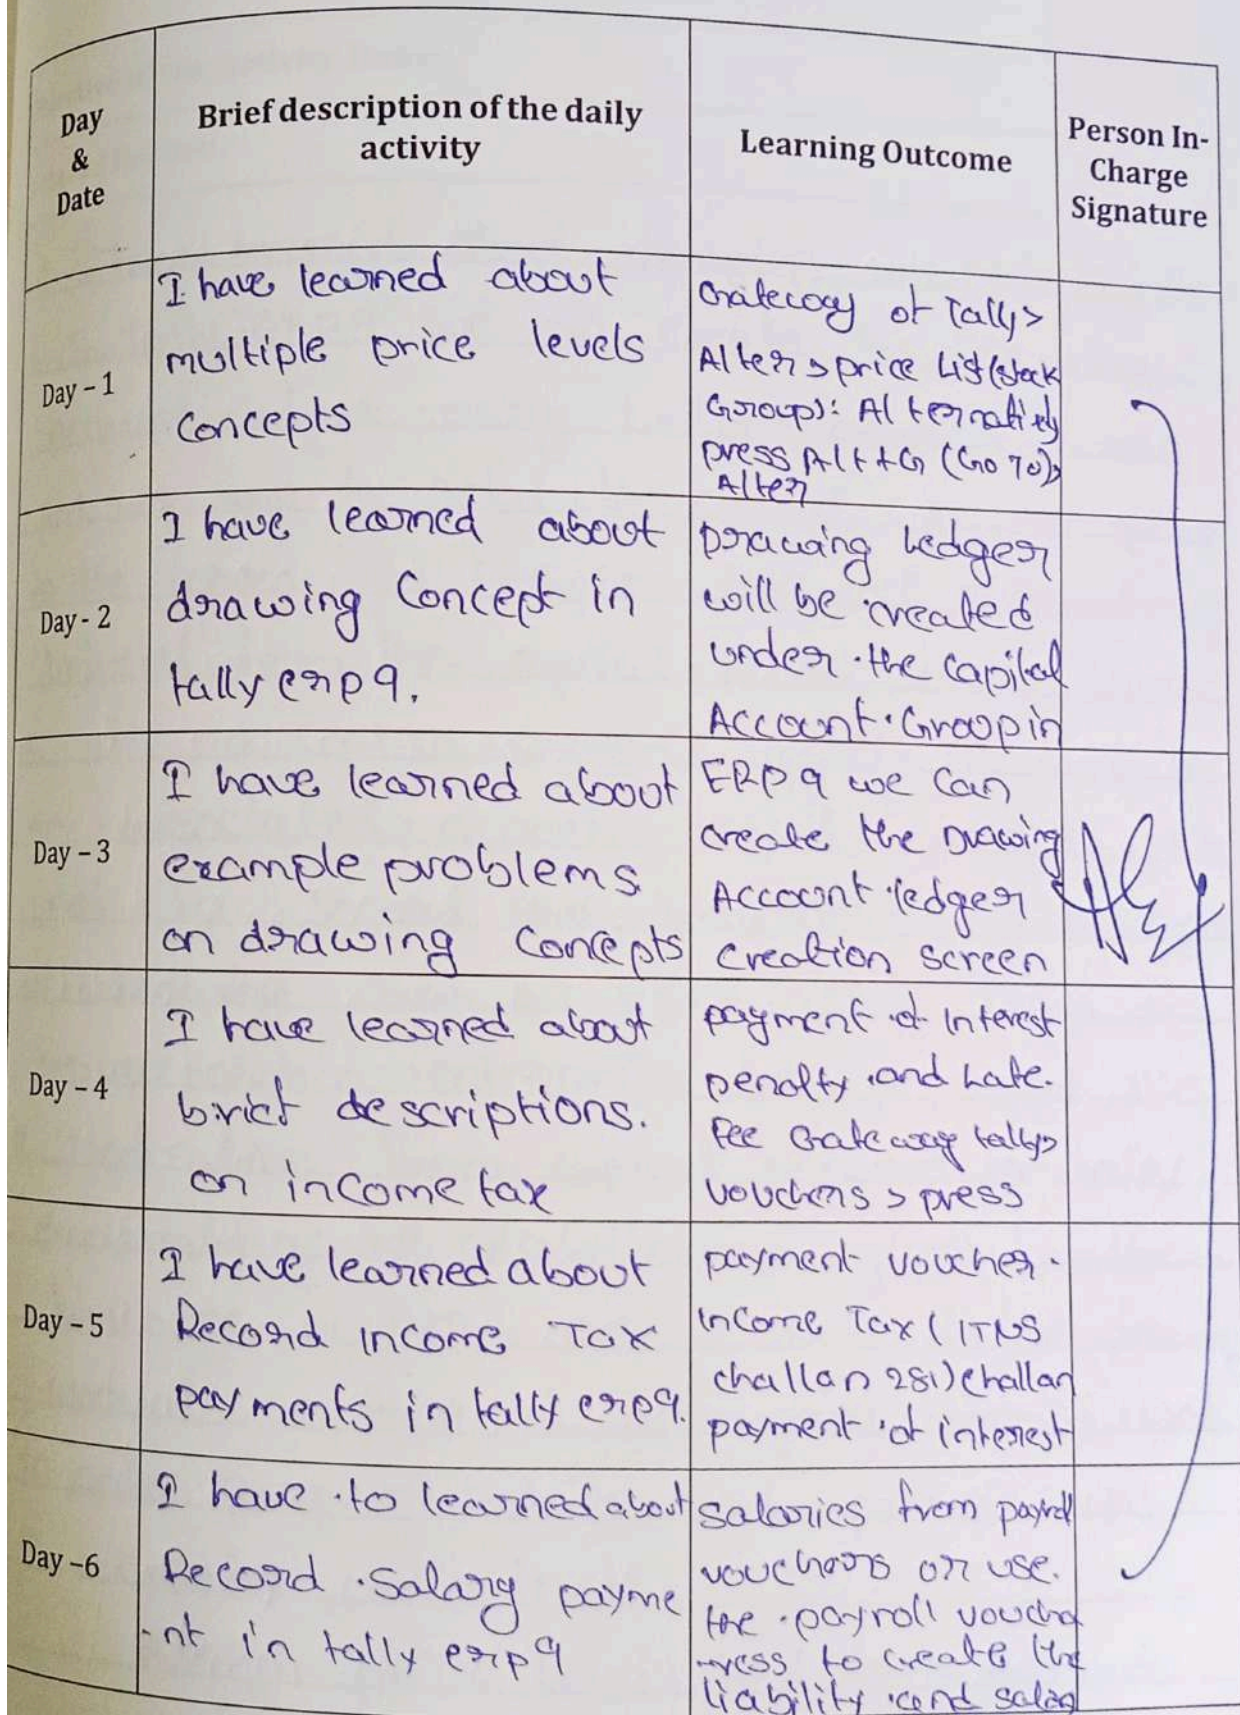 Day
&
Date
Brief description of the daily
activity
Learning Outcome
Person In-
Charge
Signature
Day – 1
I have learned about
multiple price levels
concepts
Gateway of Tally>
Alter > price List (stock
Group): Alternatively
press Alt+G (Go To)>
Alter
Day - 2
I have learned about
drawing Concept in
tally erp9.
Drawing Ledger
will be created
under the Capital
Account Group in
Day – 3
I have learned about
example problems
on drawing Concepts
ERP 9 we can
create the Drawing
Account ledger
creation screen
Day – 4
I have learned about
descriptions.
on income tax
payment of Interest
penalty and Late.
Fee Gateway tally>
vouchers > press
Day – 5
I have learned about
Record Income Tax
payments in tally erp9.
payment voucher.
Income Tax (ITNS
challan 281) challan
payment of interest
Day –6
I have to learned about
Record Salary payme
-nt in tally erp9
salaries from payroll
vouchers or use.
the payroll
to create the
liability and